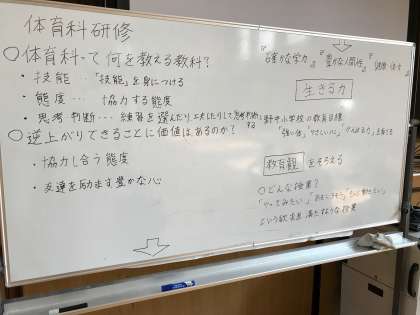 体育科研修
○体育科って何を教える教科?
・技能…「技能」を身につける
・態度…協力する態度
・思考判断…練習を選んだり、工夫したりして思考判断する
○逆上がりできることに価値はあるのか?
・協力し合う態度
・友達を励ます豊かな心
『確かな学力』『豊かな人間性』『健康・体力』
生きる力
小学校の教育目標
「強い体」「やさしい心」「がんばる力」を育てる
教育観をそろえる
○どんな授業?
「やってみたい。」
という欲求を満たすような授業